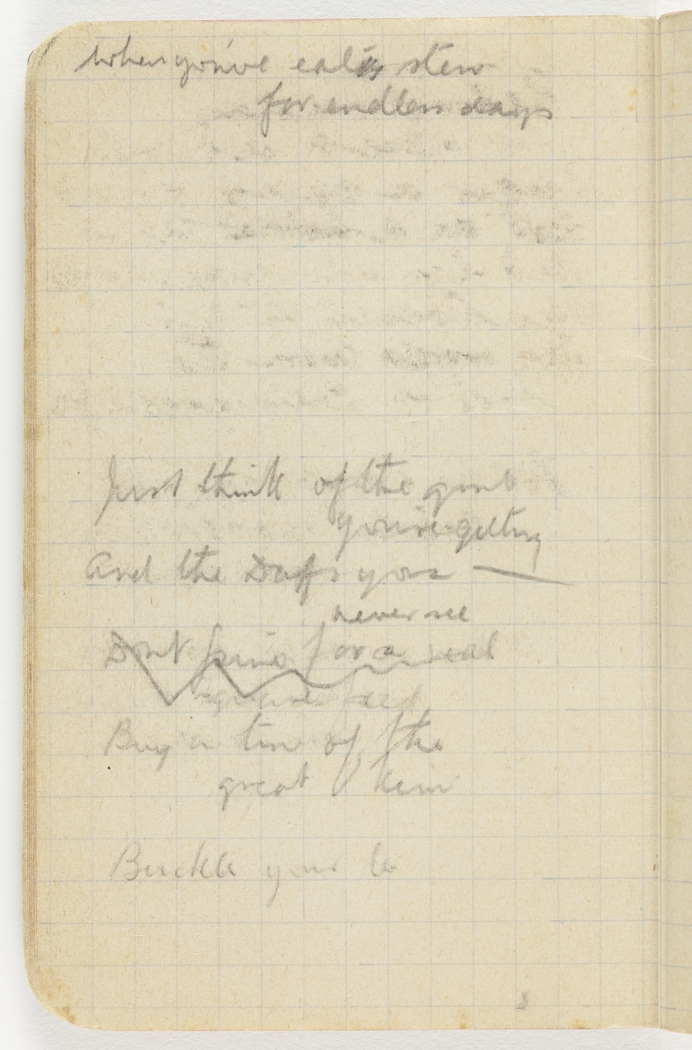 when you've eaten stew
for endless days
Just think of the
you're getting
And the Daffs you
never see
Dont pine for a real
Buy a tin of the
great Kim
Buckle your